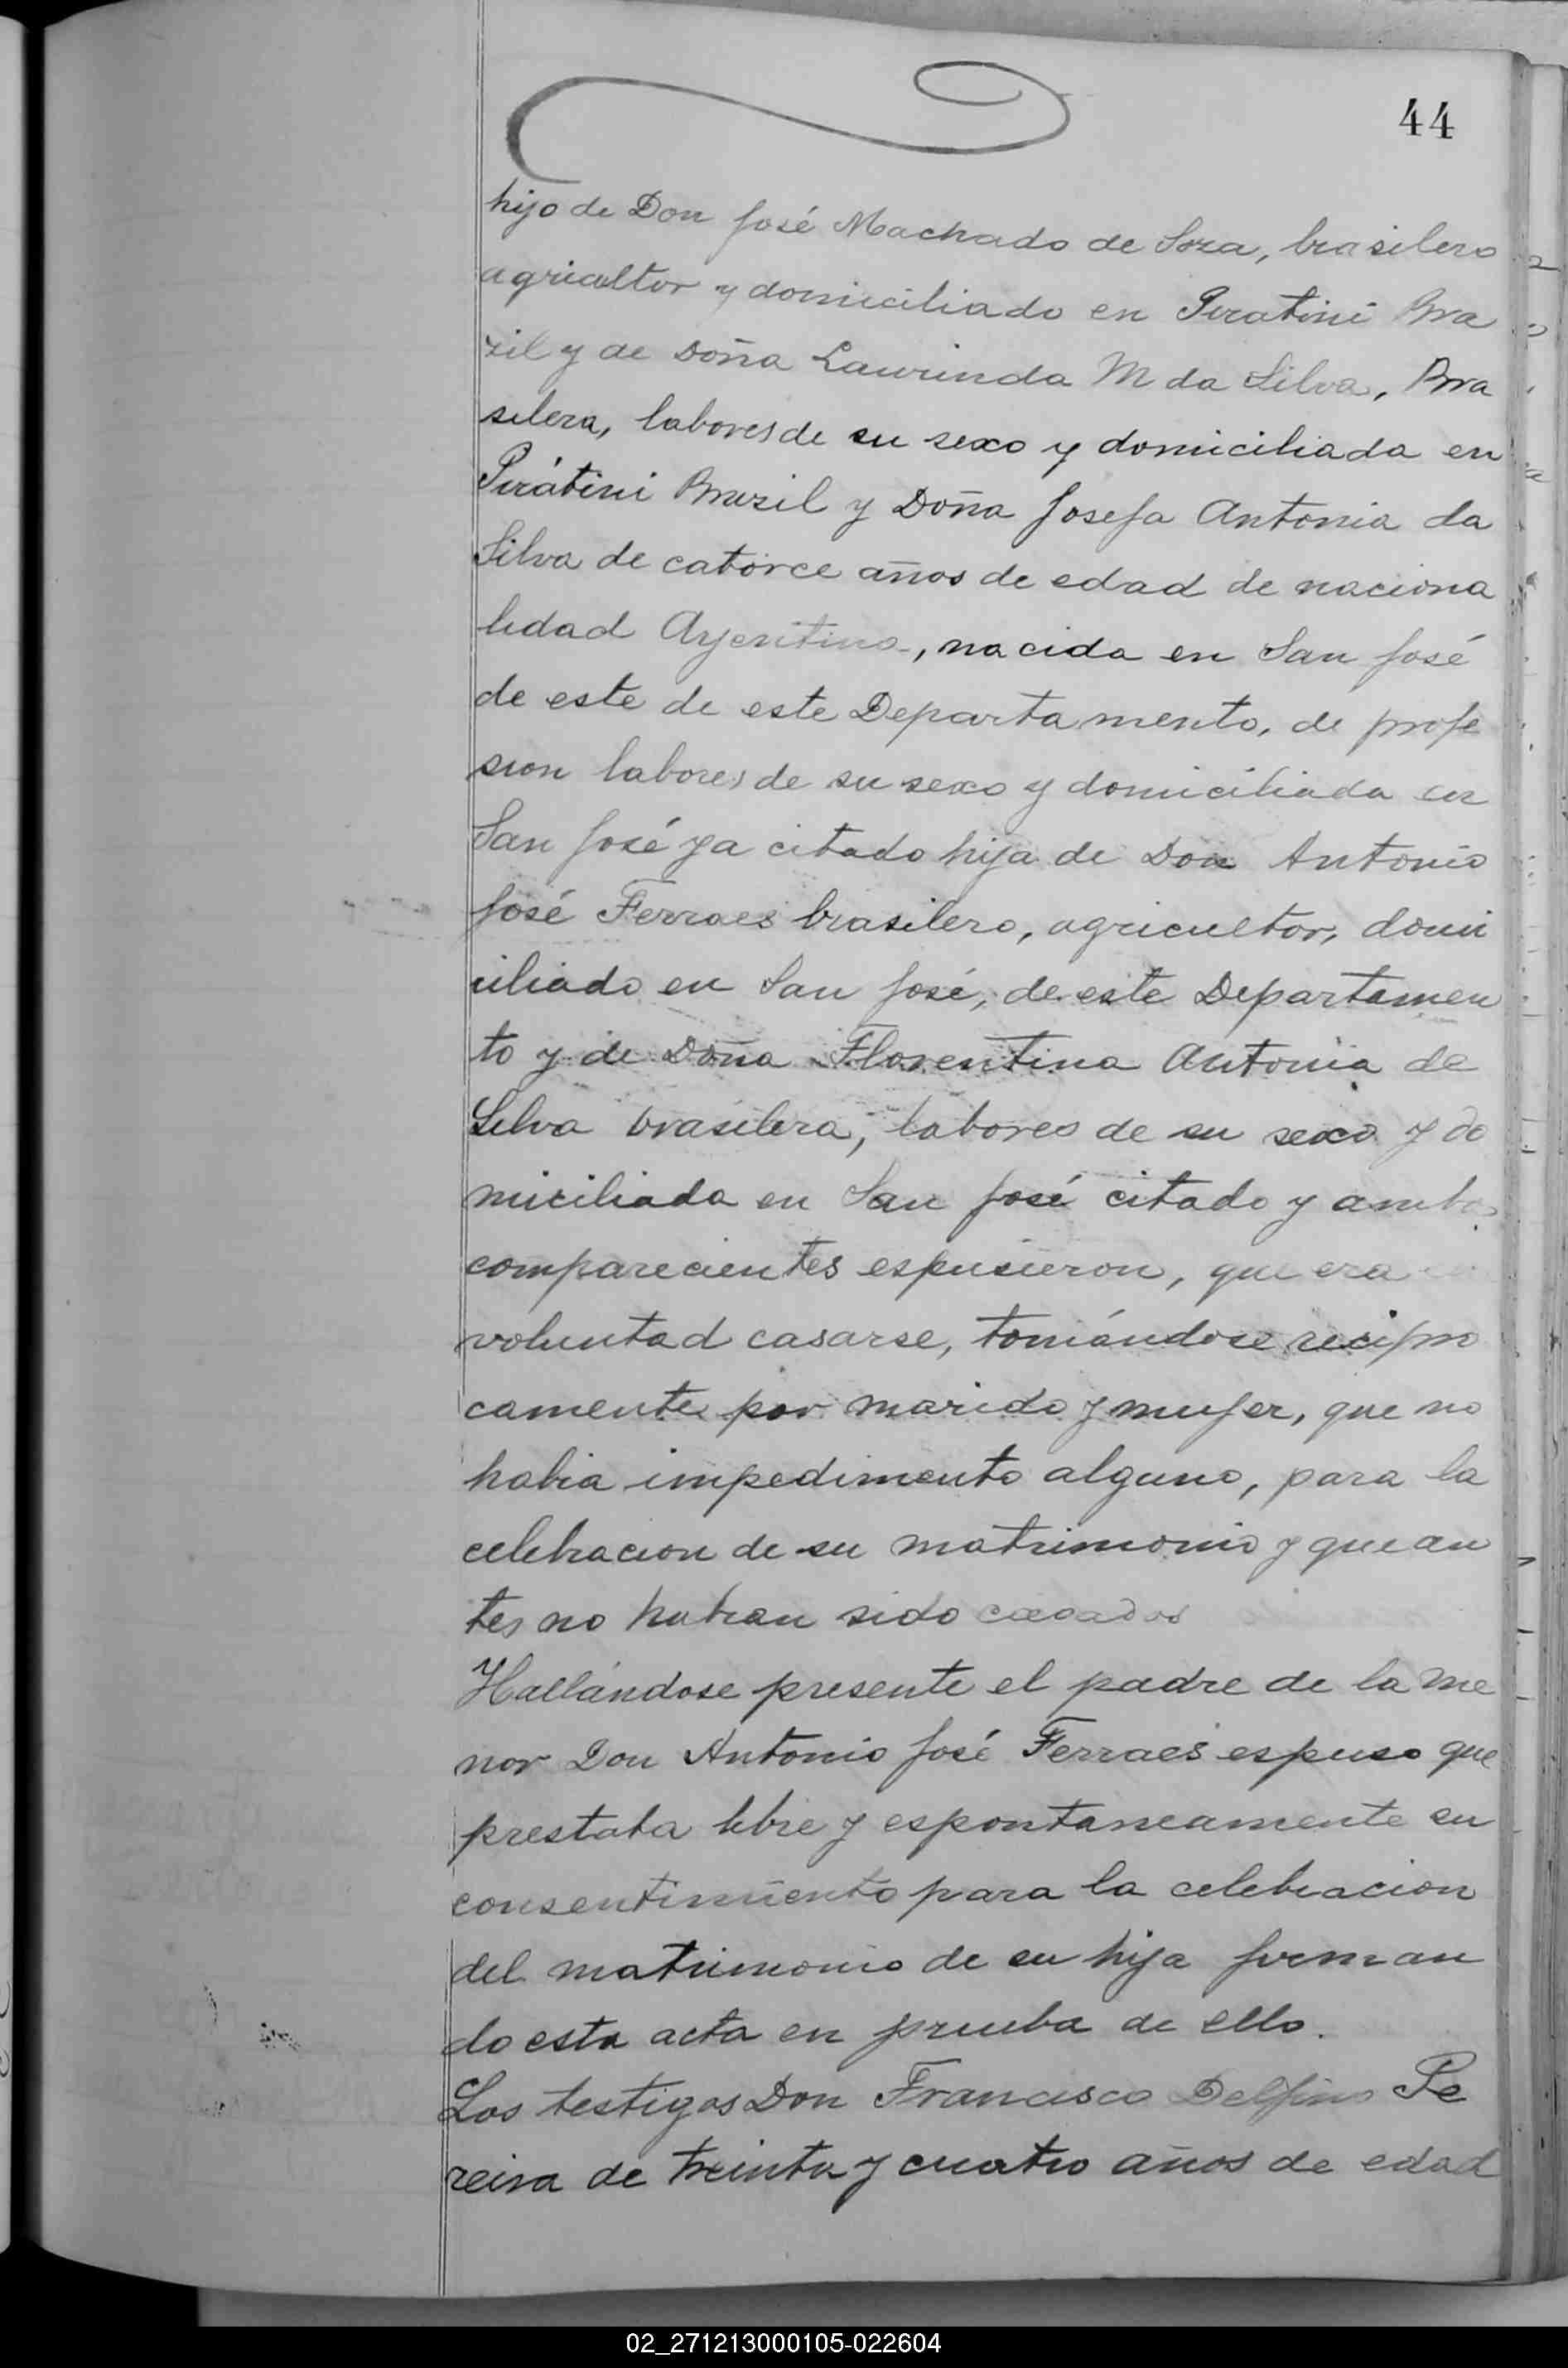 44
hijo de Don José Machado de Soza, brasilero
agricultor y domiciliado en Piratini Bra
zil y de Doña Laurinda M da Silva, Bra
silera, labores de su sexo y domiciliada en
Pirátini Brazil y Doña Josefa Antonia da
Silva de catorce años de edad de naciona
lidad Argentina, nacida en San José
de este de este Departamento, de profe
sion labores de su sexo y domiciliada en
San José ya citado hija de Don Antonio
José Ferraes brasilero, agricultor, domi
ciliado en San José, de este Departamen
to y de Doña Florentina Antonia de
Silva brasilera, labores de su sexo y do
miciliada en San José citado y ambos
comparecientes espusieron, que era
voluntad casarse, tomándose recipro
camente por marido y mujer, que no
habia impedimento alguno, para la
celebracion de su matrimonio y que an
tes no habian sido casados
Hallándose presente el padre de la me
nor Don Antonio José Ferraes espuso que
prestaba libre y espontaneamente su
consentimiento para la celebracion
del matrimonio de su hija firman
do esta acta en prueba de ello.
Los testigos Don Francisco Delfino Pe
reira de treinta y cuatro años de edad
02_271213000105-022604